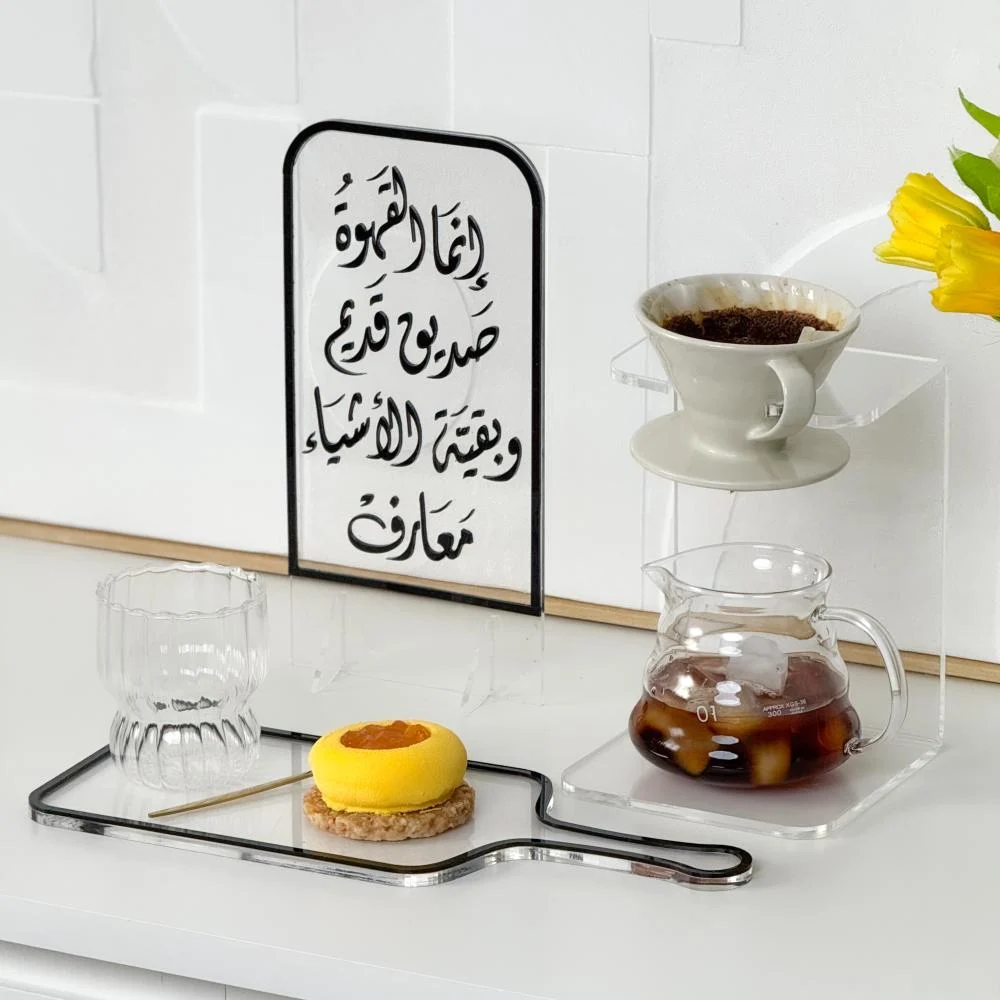 إنَّمَا القَهوَةُ
صَديق قَديم
وبقيَّة الأشيَاء
مَعَارفْ
01
APPROX XGS-36
300